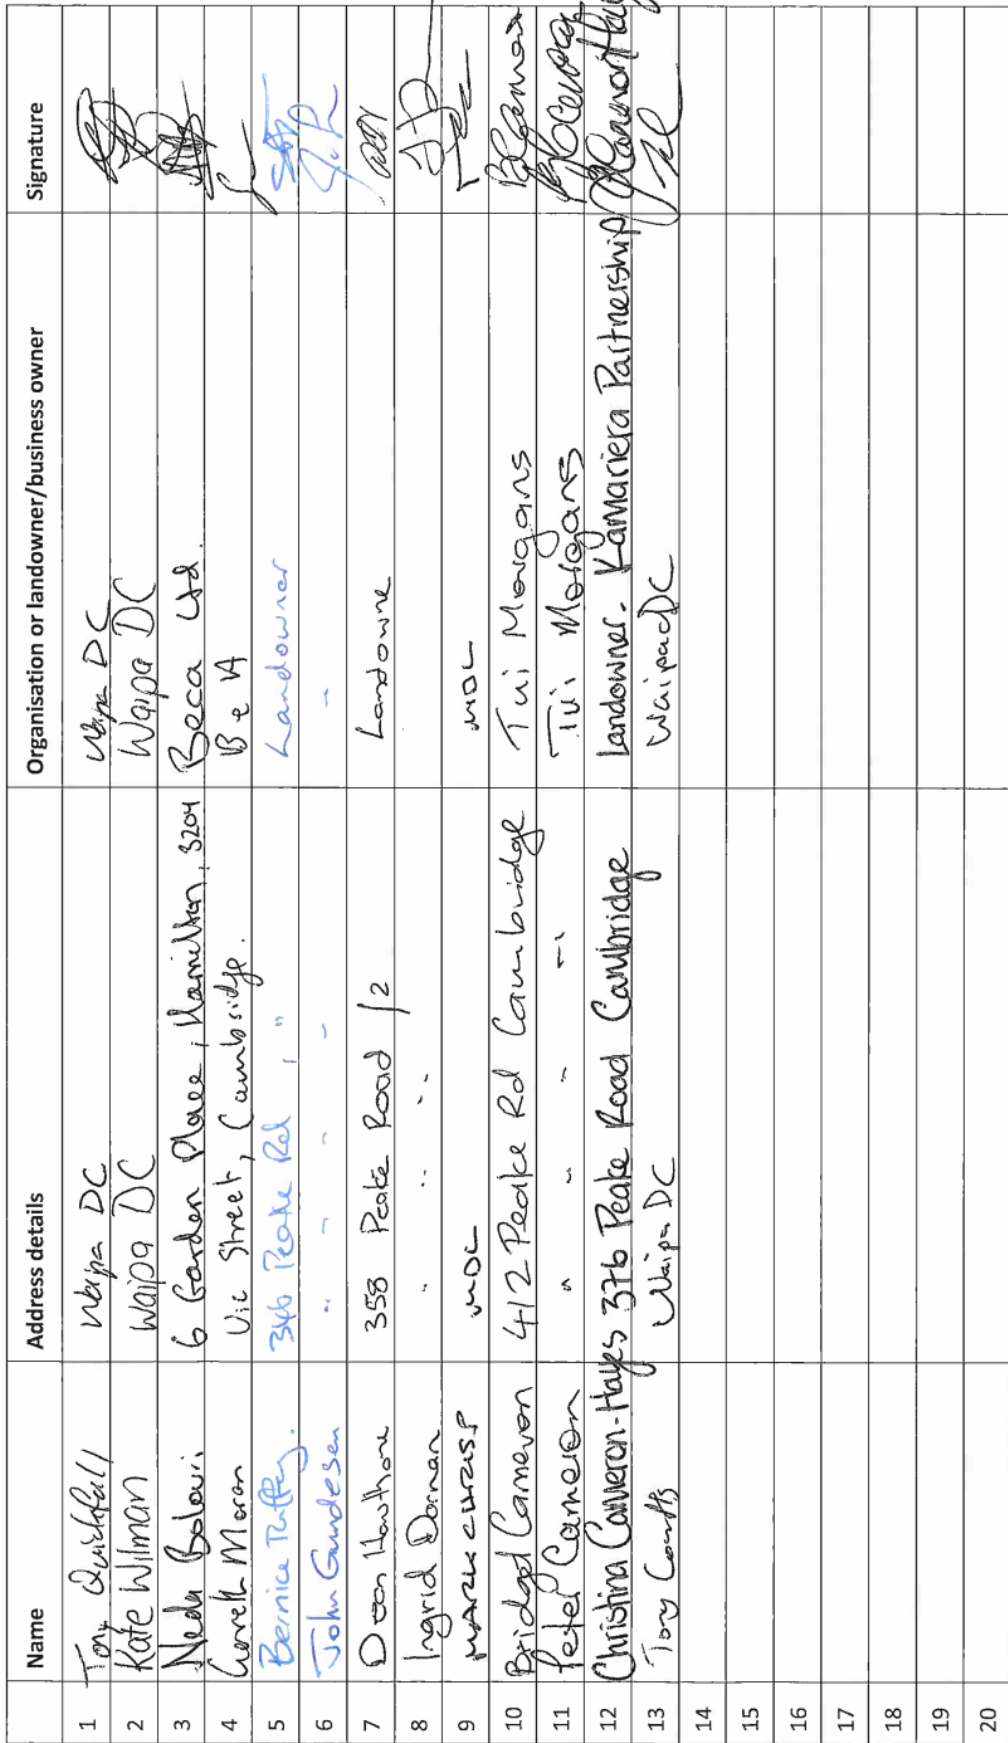 Name Address details Organisation or landowner/business owner Signature
1 Tony Quickfall Waipa DC Waipa DC
2 Kate Wilman Waipa DC Waipa DC
3 Neda Bolouri 6 Garden Place, Hamilton, 3204 Beca Ltd.
4 Gareth Moran Vic Street, Cambridge. B & A
5 Bernice 346 Peake Rd , " Landowner
6 John Gundesen " " " " "
7 Dean Hawthorne 358 Peake Road /2 Landowne
8 Ingrid Dornan " " "
9 MARK CHRISP MDL MDL
10 Bridget Cameron 412 Peake Rd Cambridge Tui Morgans BCameron
11 Peter Cameron " " " " Tui Morgans
12 Christina Cameron-Hayes 376 Peake Road Cambridge Landowner. Kamariera Partnership
13 Tony Coutts Waipa DC Waipa DC
14
15
16
17
18
19
20